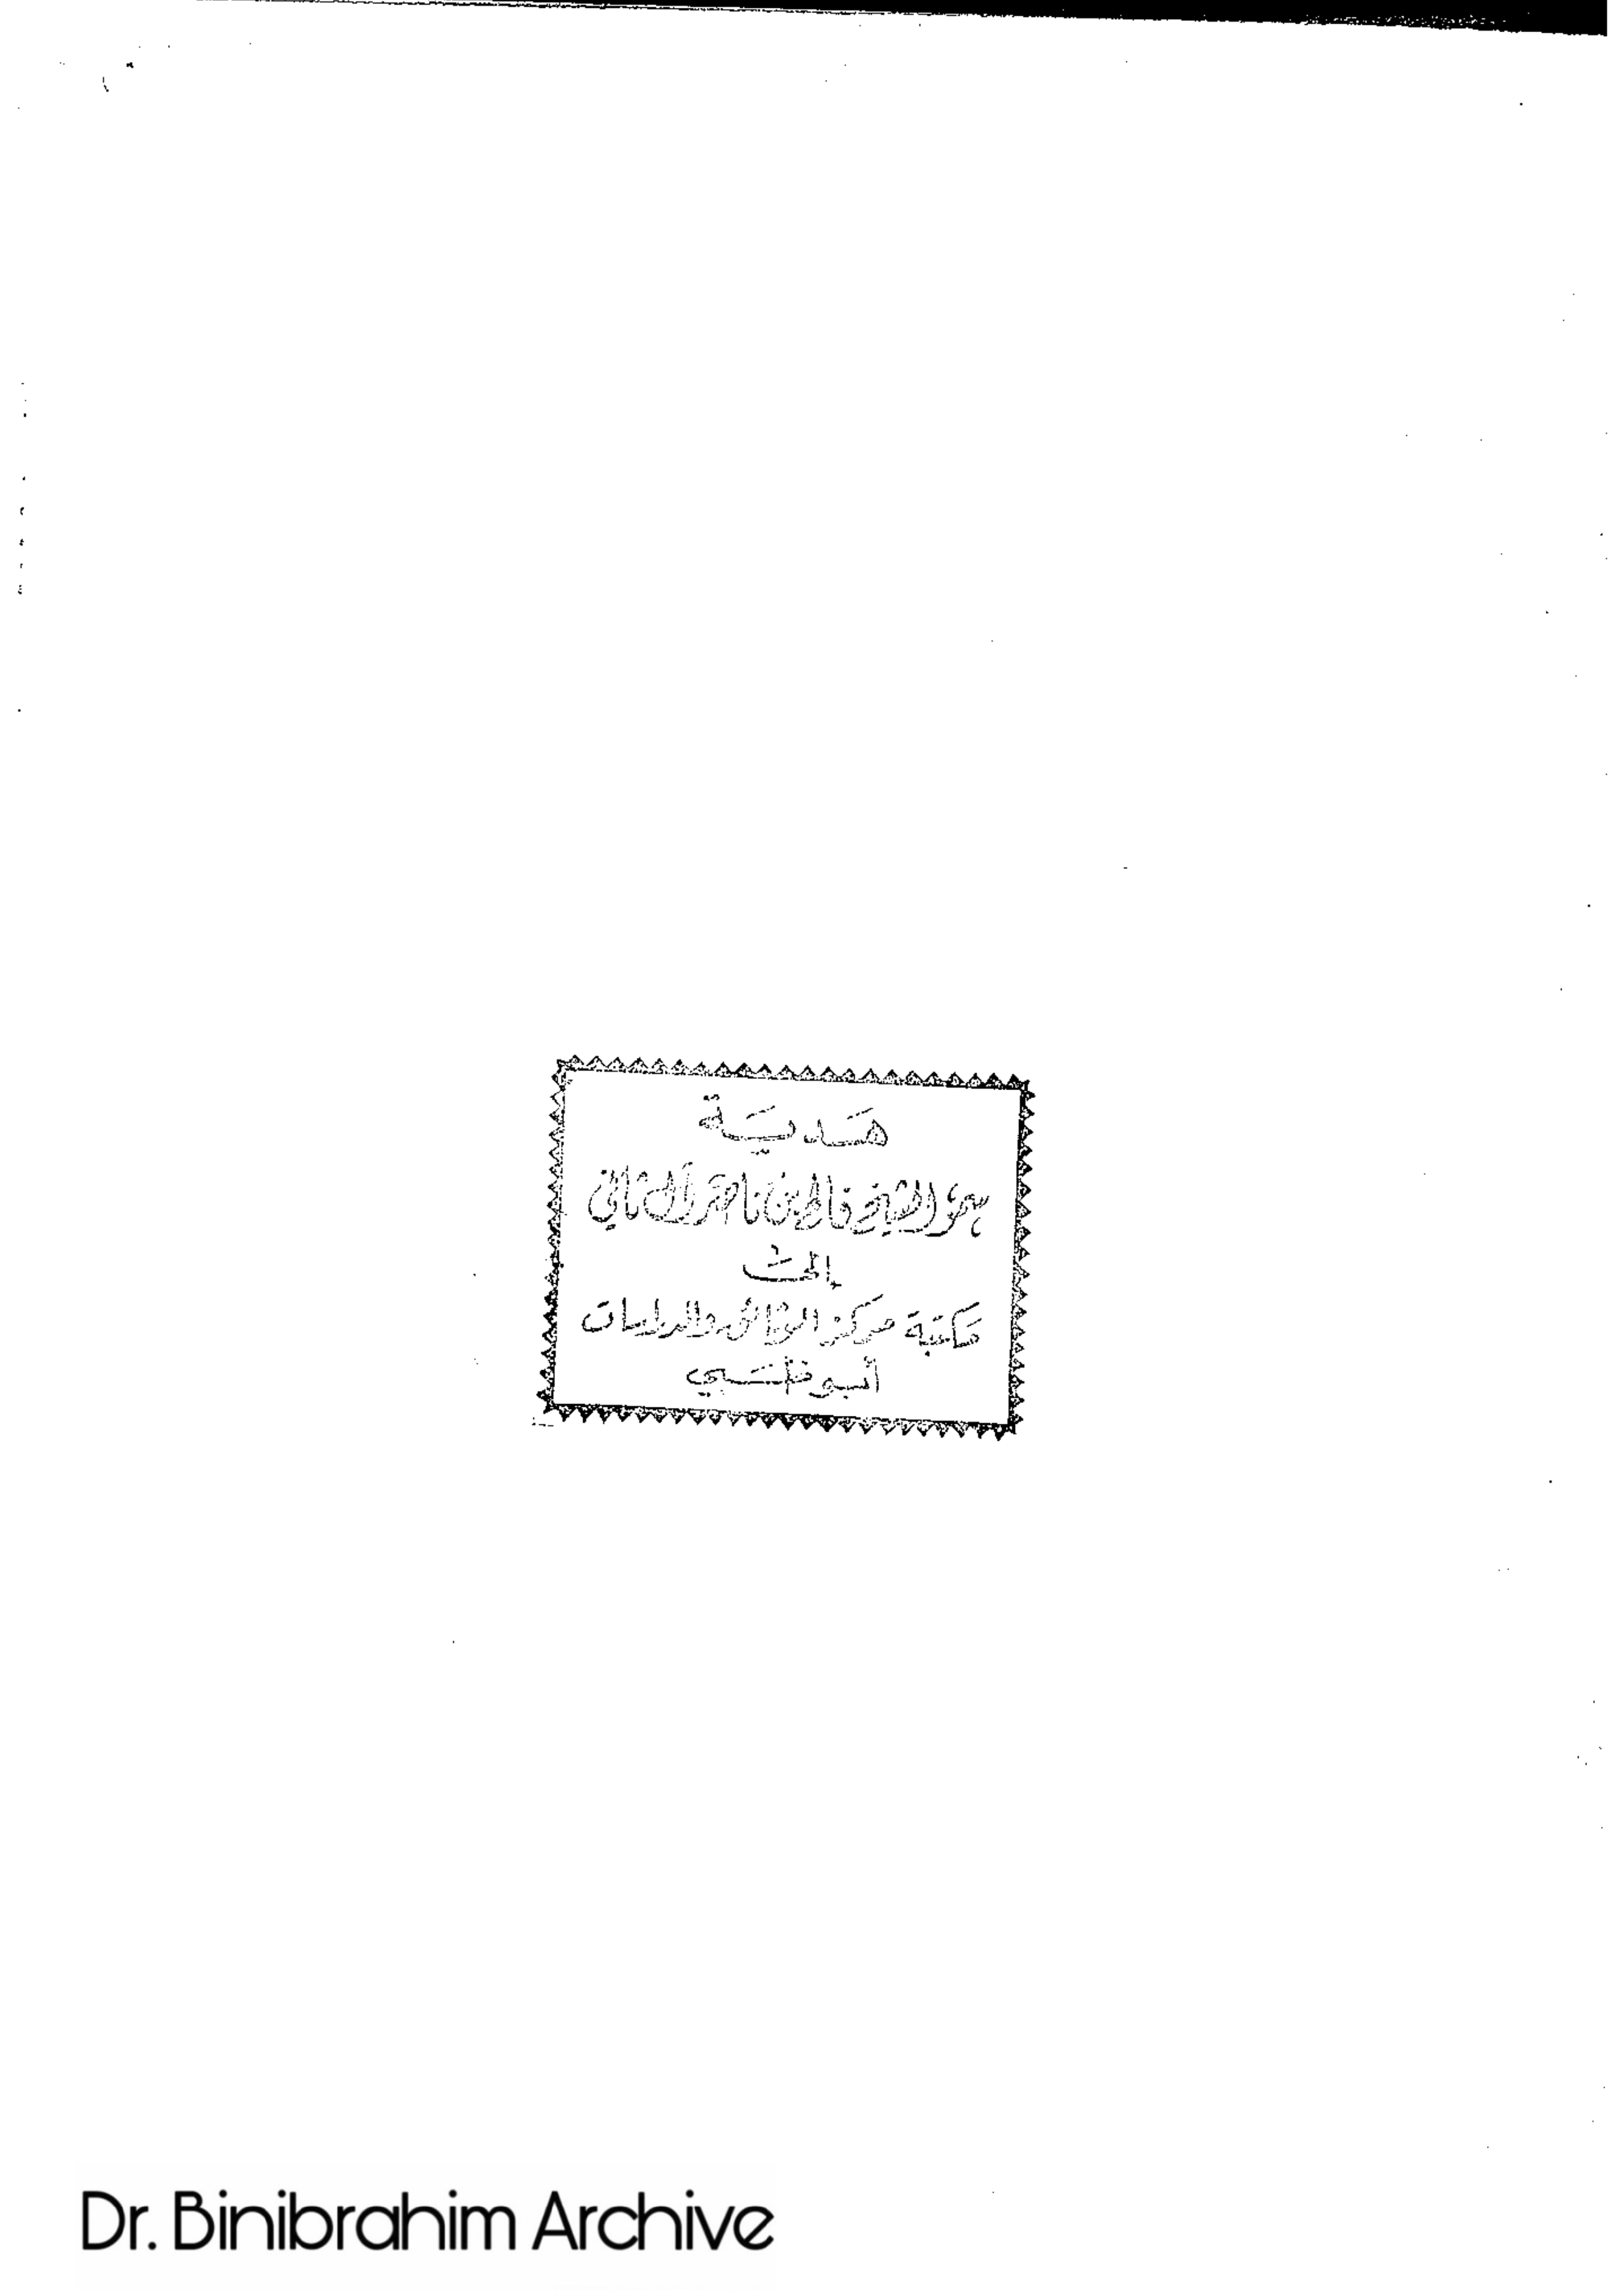 هَديَة
سمو الشيخ فالح بن ناصر آل ثاني
إلى
مكتبة مركز الوثائق والدراسات
أبوظبي
Dr. Binibrahim Archive